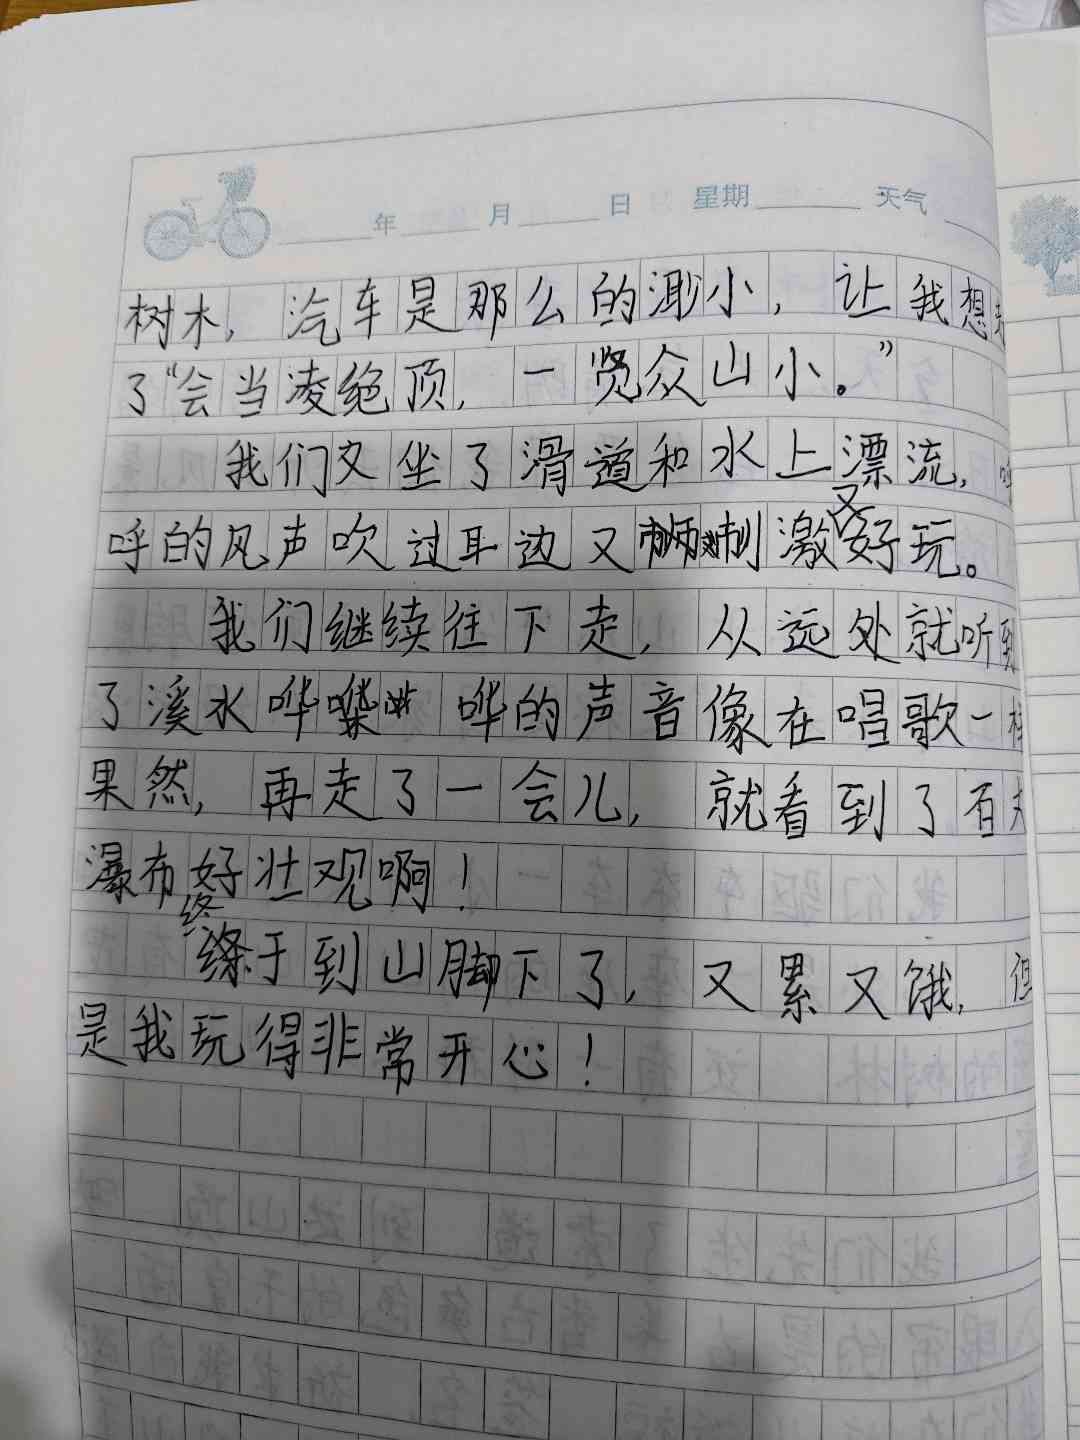 年 月 日 星期 天气
树木，汽车是那么的渺小，让我想
了“会当凌绝顶，一览众山小。”
我们又坐了滑道和水上漂流，
呼的风声吹过耳边又刺激又好玩。
我们继续往下走，从远处就听到
了溪水哗哗的声音像在唱歌一样
果然，再走了一会儿，就看到了百丈
瀑布好壮观啊！
终于到山脚下了，又累又饿，但
是我玩得非常开心！